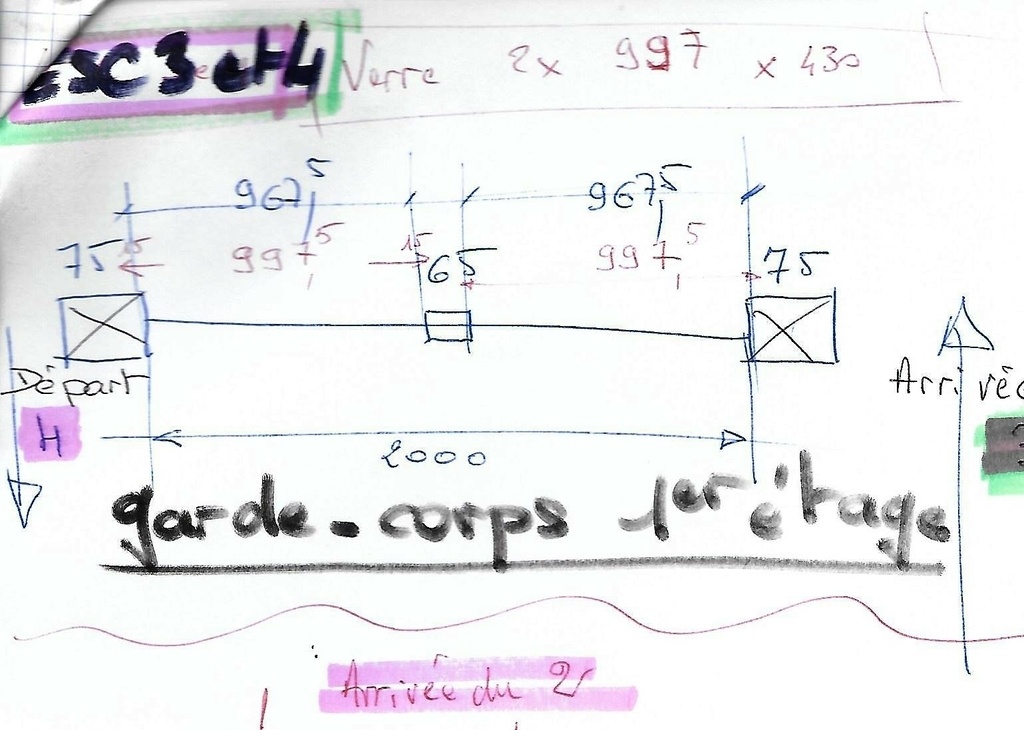 ESC 3 et 4 Verre 2x 997 x 430
967,5 967,5
75 15 997,5 15 65 997,5 75
Départ
Arrivée
4
3
2000
garde-corps 1er étage
Arrivée du 2